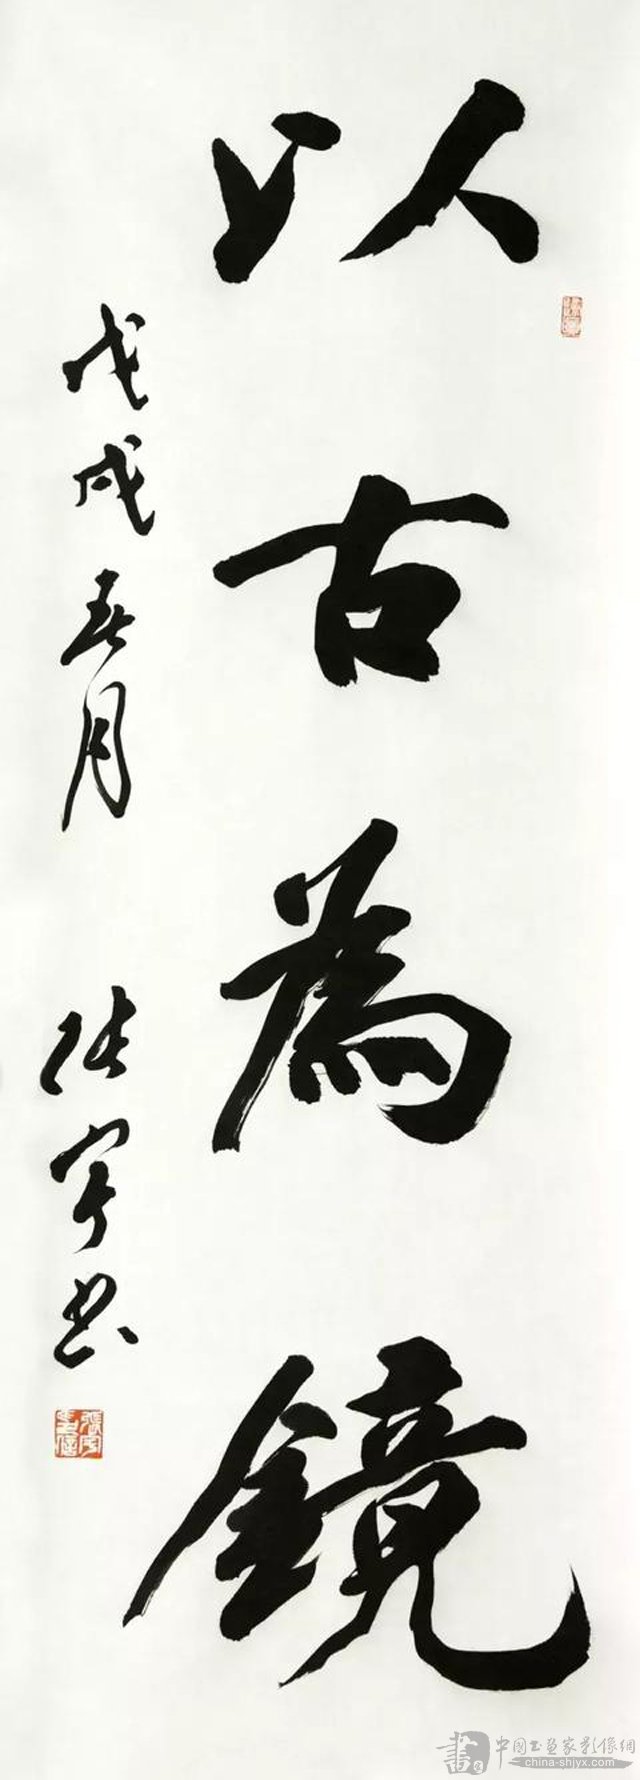 以古為鏡
戊戌春月 張宇书
中國书画家影像網
china-shjyx.com